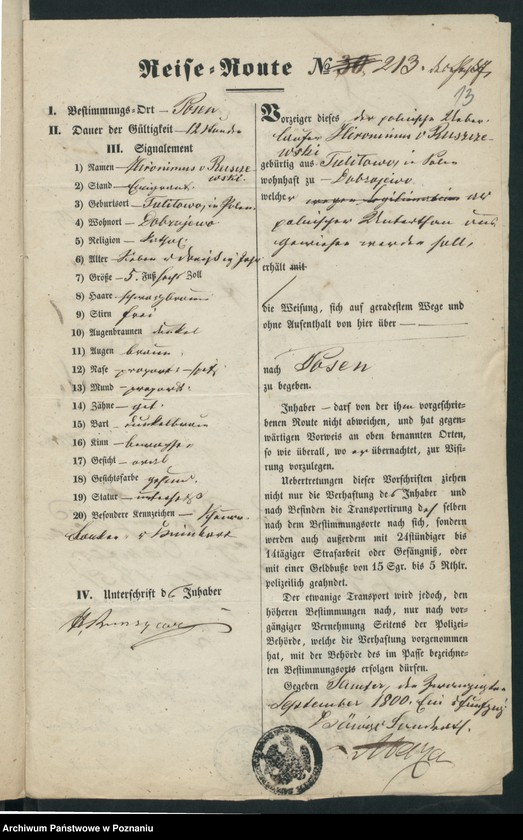 Reise-Route № 30 213.
13
I. Bestimmungs-Ort – Posen
II. Dauer der Gültigkeit – 12 Stunden
III. Signalement
1) Namen – Hieronimus v Rusze-
wski.
2) Stand – Emigrant
3) Geburtsort – Tulitowo, in Polen
4) Wohnort – Dobrojewo
5) Religion – kathol:
6) Alter
7) Größe – 5 Fuß sechs Zoll
8) Haare – schwarzbraun
9) Stirn frei
10) Augenbraunen dunkel
11) Augen braun
12) Nase proport: – spitz
13) Mund – proport:
14) Zähne – gut
15) Bart – dunkelbraun
16) Kinn – bewachsen
17) Gesicht – oval
18) Gesichtsfarbe gesund
19) Statur – untersetzt
20) Besondere Kennzeichen –
IV. Unterschrift des Inhaber
Vorzeiger dieses der polnische Ueber-
läufer Hieronimus v Rusze-
wski
gebürtig aus Tulitowo, in Polen
wohnhaft zu – Dobrojewo
welcher wegen Legitimation als
polnischer Unterthan aus
gewiesen werden soll,
erhält mit
die Weisung, sich auf geradestem Wege und
ohne Aufenthalt von hier über —
nach Posen
zu begeben.
Inhaber – darf von der ihm vorgeschrie-
benen Route nicht abweichen, und hat gegen-
wärtigen Vorweis an oben benannten Orten,
so wie überall, wo er übernachtet, zur Visi-
rung vorzulegen.
Uebertretungen dieser Vorschriften ziehen
nicht nur die Verhaftung des Inhaber und
nach Befinden die Transportirung desselben
nach dem Bestimmungsorte nach sich, sondern
werden auch außerdem mit 24stündiger bis
14tägiger Strafarbeit oder Gefängniß, oder
mit einer Geldbuße von 15 Sgr. bis 5 Rthlr.
polizeilich geahndet.
Der etwanige Transport wird jedoch, den
höheren Bestimmungen nach, nur nach vor-
gängiger Vernehmung Seitens der Polizei-
Behörde, welche die Verhaftung vorgenommen
hat, mit der Behörde des im Passe bezeichne-
ten Bestimmungsorts erfolgen dürfen.
Gegeben Samter, den Zwanzigsten
September 1800. Ein & fünfzig
Archiwum Państwowe w Poznaniu